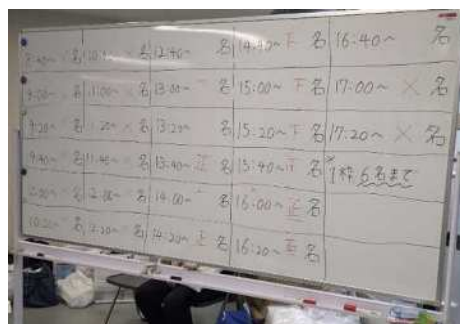 8:40~ × 名 10:40~ × 名 12:40~ 名 14:40~ 下 名 16:40~ 名
9:00~ 名 11:00~ × 名 13:00~ 名 15:00~ 下 名 17:00~ × 名
9:20~ 名 11:20~ × 名 13:20~ 名 15:20~ 下 名 17:20~ × 名
9:40~ 名 11:40~ × 名 13:40~ 正 名 15:40~ 正 名 *1枠 6名まで
10:00~ 名 12:00~ 名 14:00~ 名 16:00~ 正 名
10:20~ 名 12:20~ 名 14:20~ 正 名 16:20~ 正 名